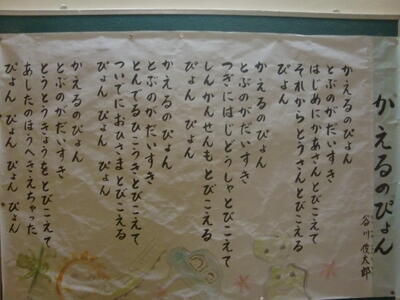 かえるのぴょん
谷川俊太郎
かえるのぴょん
とぶのがだいすき
はじめにかあさんとびこえて
それからとうさんとびこえる
ぴょん
かえるのぴょん
とぶのがだいすき
つぎにはじどうしゃとびこえて
しんかんせんもとびこえる
ぴょん ぴょん
かえるのぴょん
とぶのがだいすき
とんでるひこうきとびこえて
ついでにおひさまとびこえる
ぴょん ぴょん ぴょん
かえるのぴょん
とぶのがだいすき
とうとうきょうをとびこえて
あしたのほうへきえちゃった
ぴょん ぴょん ぴょん ぴょん